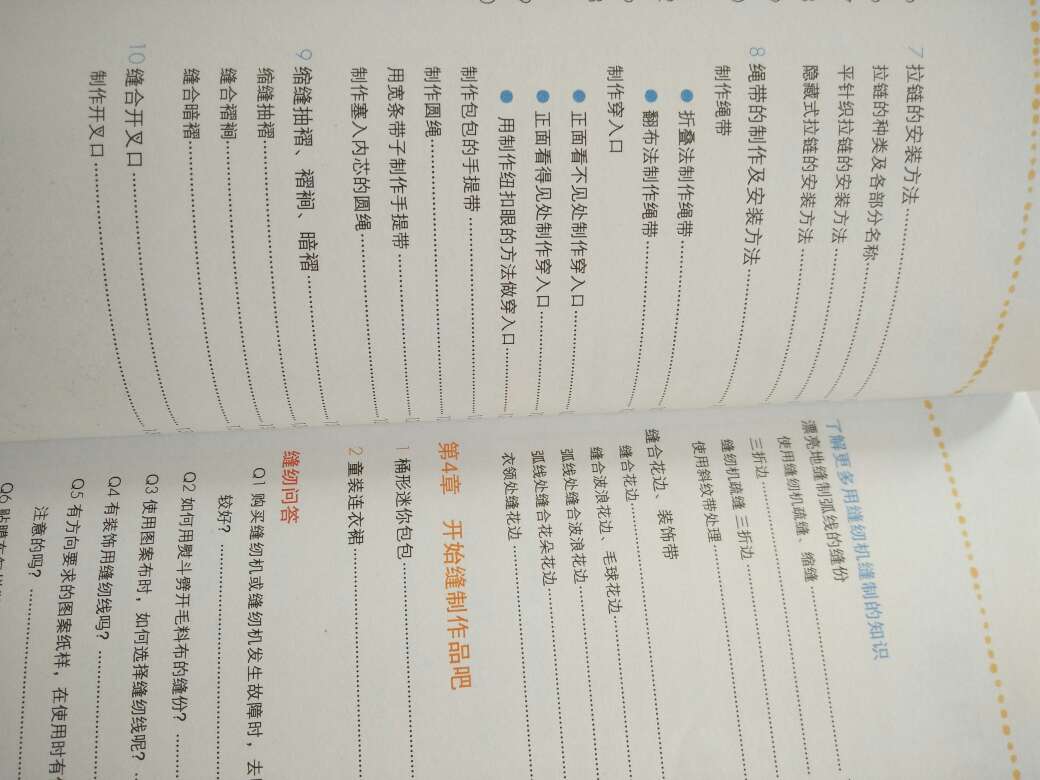 7 拉链的安装方法
拉链的种类及各部分名称
平针织拉链的安装方法
隐藏式拉链的安装方法
8 绳带的制作及安装方法
制作绳带
● 折叠法制作绳带
● 翻布法制作绳带
制作穿入口
● 正面看不见处制作穿入口
● 正面看得见处制作穿入口
● 用制作纽扣眼的方法做穿入口
制作包包的手提带
制作圆绳
用宽条带子制作手提带
制作塞入内芯的圆绳
9 缩缝抽褶、褶裥、暗褶
缩缝抽褶
缝合褶裥
缝合暗褶
10 缝合开叉口
制作开叉口
了解更多用缝纫机缝制的知识
漂亮地缝制弧线的缝份
使用缝纫机疏缝、缩缝
三折边
缝纫机疏缝 三折边
使用斜纹带处理
缝合花边、装饰带
缝合花边
缝合波浪花边、毛球花边
弧线处缝合波浪花边
弧线处缝合花朵花边
衣领处缝花边
第4章 开始缝制作品吧
1 桶形迷你包包
2 童装连衣裙
缝纫问答
Q1 购买缝纫机或缝纫机发生故障时，去
较好？
Q2 如何用熨斗劈开毛料布的缝份？
Q3 使用图案布时，如何选择缝纫线呢？
Q4 有装饰用缝纫线吗？
Q5 有方向要求的图案纸样，在使用时有
注意的吗？
Q6